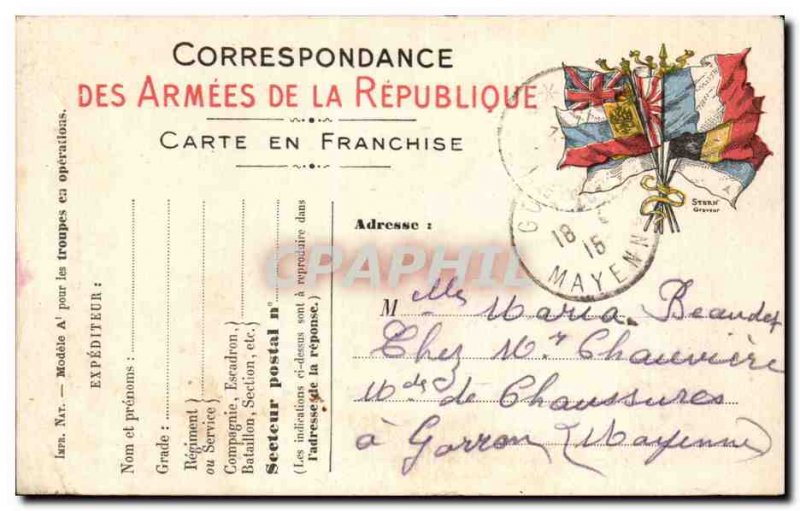 CORRESPONDANCE
DES ARMÉES DE LA RÉPUBLIQUE
CARTE EN FRANCHISE
STERN
Graveur
IMPR. NAT. — Modèle A¹ pour les troupes en opérations.
EXPÉDITEUR :
Nom et prénoms :
Grade :
Régiment
ou Service)
Compagnie, Escadron,
Bataillon, Section, etc.
Secteur postal n°
(Les indications ci-dessus sont à reproduire dans
l'adresse de la réponse.)
18
15
MAYENNE
CPAPHIL
Adresse :
Melle Maria Beaudet
Chez Mr Chauvière
Md de Chaussures
à Gorron (Mayenne)